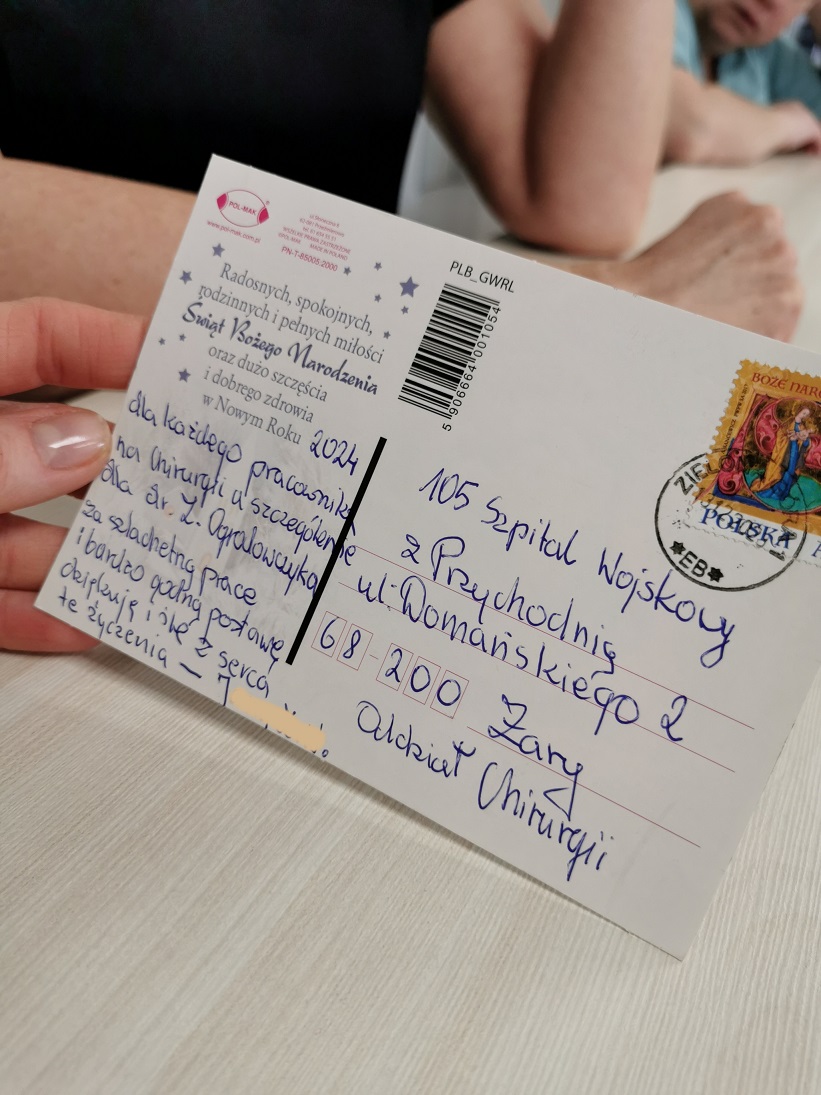 POL-MAK
www.pol-mak.com.pl
PN-T-85005:2000
Radosnych, spokojnych,
rodzinnych i pełnych miłości
Świąt Bożego Narodzenia
oraz dużo szczęścia
i dobrego zdrowia
w Nowym Roku 2024
dla każdego pracownika
na Chirurgii a szczególenie
dla dr. Z. Ogrodowczyka
za szlachetną pracę
i bardzo godną postawę
dziękuję i ślę z serca
te życzenia —
PLB_GWRL
5 906664 001054
BOŻE NARO
POLSKA
A
ZIEL
*EB*
105 Szpital Wojskowy
z Przychodnią
ul. Domańskiego 2
68-200 Żary
Oddział Chirurgii